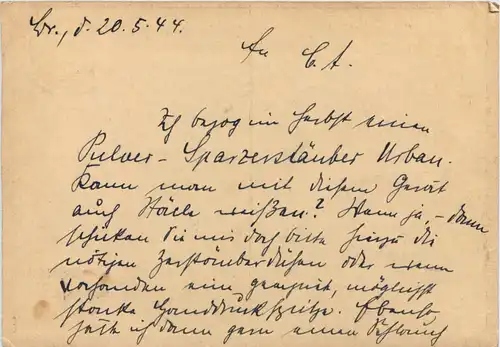 Br., d. 20.5.44.
An C. A.
Ich bezog im Herbst einen
Pulver-Sparzerstäuber Urban.
Kann man mit diesem Gerät
auch Ställe weißen? Wenn ja, - dann
schicken Sie mir doch bitte hierzu die
nötigen Zerstäuberdüsen oder wenn
vorhanden eine geeignete, möglichst
starke Handdruckspritze. Ebenso
hätte ich dann gern einen Schlauch